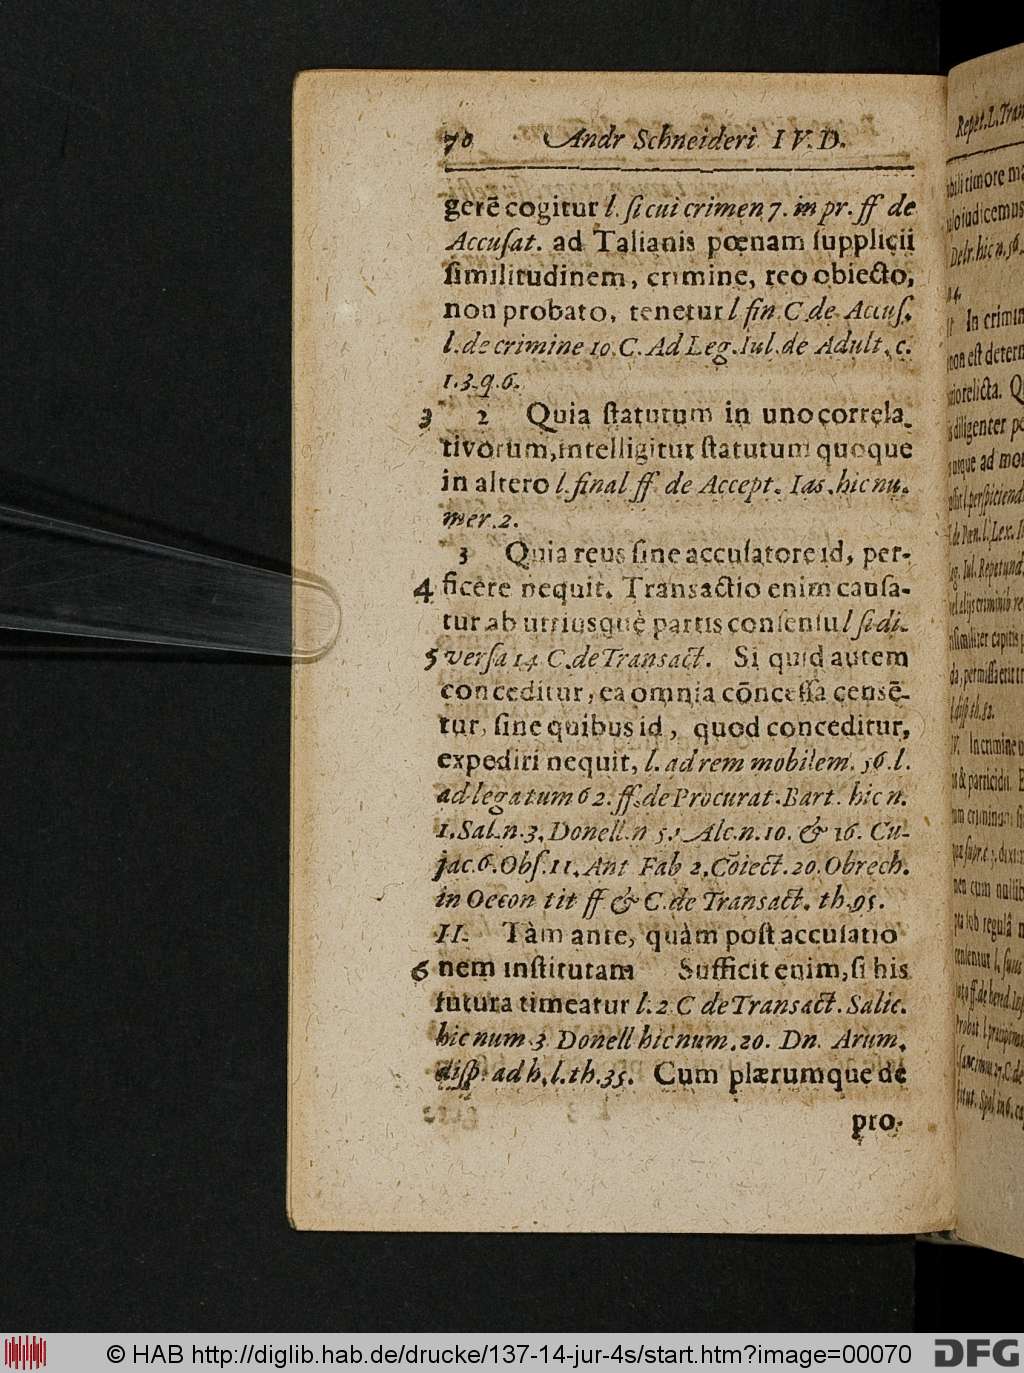 70 Andr Schneideri I V. D.
gerē cogitur l. ſi cui crimen 7. in pr. ff de
Accuſat. ad Talianis pœnam ſupplicii
ſimilitudinem, crimine, reo obiecto,
non probato, tenetur l fin C. de Accuſ.
l. de crimine 10. C. Ad Leg. Iul. de Adult. c.
1. 3. q. 6.
3 2 Quia ſtatutum in uno correla-
tivorum, intelligitur ſtatutum quoque
in altero l. final ff de Accept. Ias. hic nu-
mer. 2.
3 Quia reus ſine accuſatore id, per-
4 ficere nequit. Transactio enim cauſa-
tur ab utriusquè partis conſenſu l ſi di-
5 verſa 14 C. de Transact. Si quid autem
conceditur, ea omnia cōnceſſa censē-
tur, ſine quibus id, quod conceditur,
expediri nequit, l. ad rem mobilem. 56. l.
ad legatum 62. ff. de Procurat. Bart. hic n.
1. Sal. n. 3. Donell. n 5. Alc. n. 10. & 16. Cu-
jac. 6. Obſ. 11. Ant Fab 2. Cōiect. 20. Obrech.
in Oecon tit ff & C. de Transact. th. 95.
II. Tàm ante, quàm poſt accuſatio
6 nem inſtitutam Sufficit enim, ſi his
futura timeatur l. 2 C de Transact. Salic.
hic num. 3 Donell hic num. 20. Dn. Arum.
diſp. ad h. l. th. 35. Cum plærumque de
pro-
Repet. L. Tran
In crimin
non eſt determ
diligenter
th. 82.
In crimine
& parricidii.
nen cum
© HAB http://diglib.hab.de/drucke/137-14-jur-4s/start.htm?image=00070
DFG